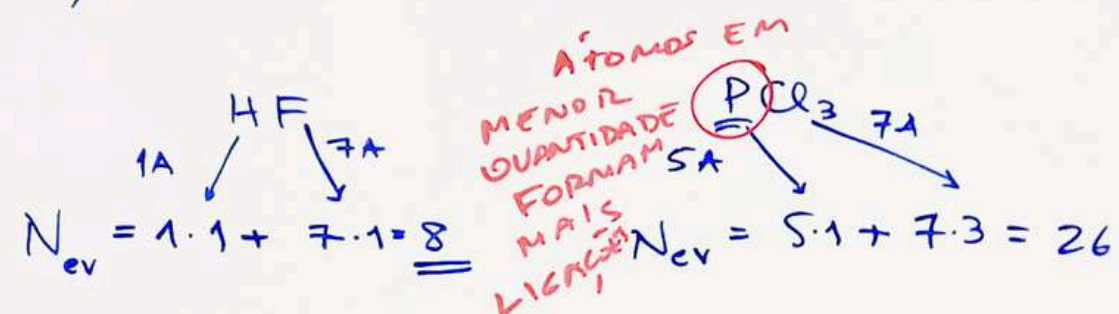 H F
1A
7A
N_ev = 1.1 + 7.1 = 8
ÁTOMOS EM
MENOR
QUANTIDADE
FORMAM
MAIS
LIGAÇÕES
PCl3
5A
7A
N_ev = 5.1 + 7.3 = 26